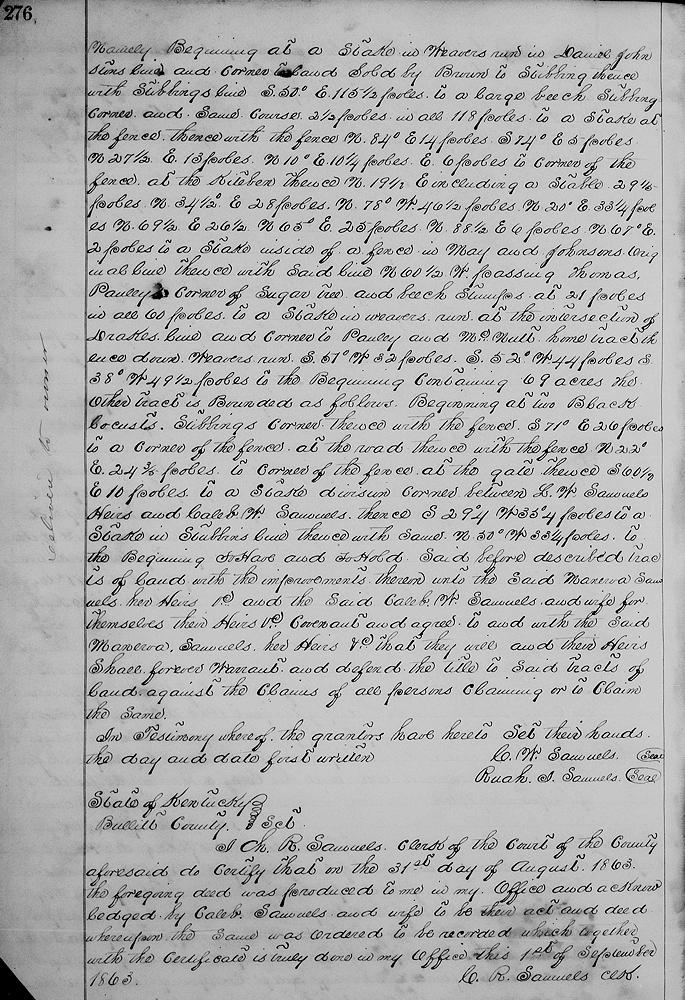 276
Namely Beginning at a Stake in Weavers run in Daniel John
stons line and Corner to Land Sold by Brown to Stibbing thence
with Stibbings line S. 50° E. 115 1/2 poles. to a large beech Stibbing
Corner and Same Course 2 1/2 poles in all 118 poles. to a Stake at
the fence. thence with the fence N. 84° E 14 poles S 74° E 5 poles
N 27 1/2 E. 13 poles. N 10° E. 10 1/4 poles E. 6 poles to Corner of the
fence. at the Kitchen thence N. 19 1/2 E including a Stable. 29 1/5
poles. N. 34 1/2° E 28 poles. N. 78° W. 46 1/2 poles. N. 20° E. 33 1/4 pol
es N. 69 1/2 E 26 1/2 N 65° E. 25 poles. N. 88 1/2 E 6 poles. N 67° E.
2 poles to a Stake inside of a fence in May and Johnsons Orig
inal line thence with Said line N 60 1/2 W. passing Thomas,
Pauley Corner of Sugar tree and beech Stumps at 21 poles
in all 60 poles. to a Stake in weavers run. at the intersection of
Drakes. line and Corner to Pauley and McNutt. home tract th
ence down. Weavers run S. 61° W 32 poles. S. 52° W 44 poles S.
38° W 49 1/2 poles to the Beginning Containing 69 acres the
Other tract is Bounded as follows. Beginning at two Black
Locusts. Stibbings Corner thence with the fence. S 71° E 26 poles
to a Corner of the fence. at the road thence with the fence. N 22°
E. 24 3/5 poles. to Corner of the fence. at the gate thence S 60 1/2
E 10 poles. to a Stake division Corner between L. W Samuels
Heirs and Caleb. W. Samuels. thence S 29 1/4 W 35 1/4 poles to a.
Stake in Stubbins line thence with Same. N. 50° W 33 1/4 poles. to
the Beginning To Have and To Hold. Said before described trac
ts of land with the improvements thereon unto the Said Manerva Sam
uels. her Heirs &c and the Said Caleb. W. Samuels. and wife for
themselves their Heirs &c. Covenant and agree. to and with the Said
Manerva. Samuels. her Heirs &c That they will and their Heirs
Shall. forever Warrant. and defend the title to Said tracts of
land. against the Claims of all persons Claiming or to Claim
the Same.
In Testimony whereof. the grantors have hereto Set their hands.
the day and date first written C. W. Samuels. Seal
Ruah. S. Samuels. Seal
State of Kentucky
Bullitt County. Sct.
I Ch. R. Samuels. Clerk of the Court of the County
aforesaid do Certify That on the 31st day of August. 1863.
the foregoing deed was produced to me in my. Office and acknow
ledged. by Caleb. Samuels and wife to be their act and deed
whereupon. the Same was Ordered to be recorded which together
with the Certificate is truly done in my Office this 1st of September
1863. C. R. Samuels Clk.
Delivered to owner